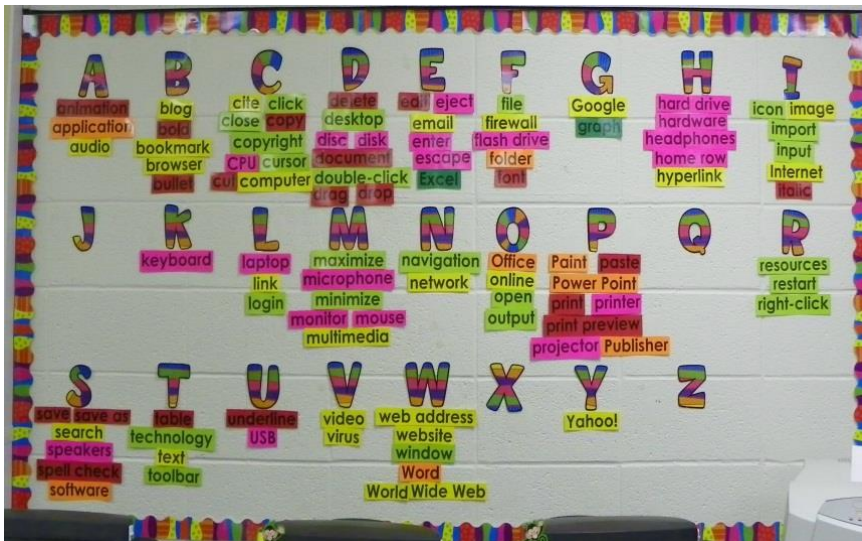 A B C D E F G H I
animation
application
audio
blog
bold
bookmark
browser
bullet
cite click
close copy
copyright
CPU cursor
cut computer
delete
desktop
disc disk
document
double-click
drag drop
edit eject
email
enter
escape
Excel
file
firewall
flash drive
folder
font
Google
graph
hard drive
hardware
headphones
home row
hyperlink
icon image
import
input
Internet
italic
J K L M N O P Q R
keyboard
laptop
link
login
maximize
microphone
minimize
monitor mouse
multimedia
navigation
network
Office
online
open
output
Paint paste
Power Point
print printer
print preview
projector Publisher
resources
restart
right-click
S T U V W X Y Z
save save as
search
speakers
spell check
software
table
technology
text
toolbar
underline
USB
video
virus
web address
website
window
Word
World Wide Web
Yahoo!